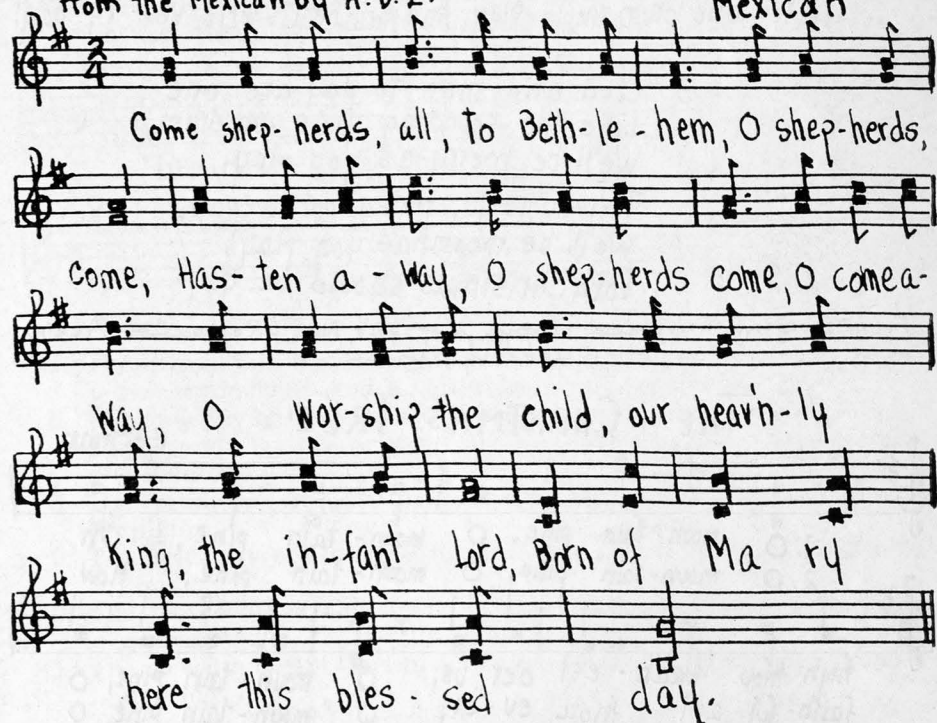 from the Mexican by A.D.Z. Mexican
2
4
Come shep-herds all, to Beth-le-hem, O shep-herds,
come, Has-ten a-way, O shep-herds come, O come a-
way, O wor-ship the child, our heav'n-ly
King, the in-fant Lord, Born of Ma ry
here this bles-sed day.